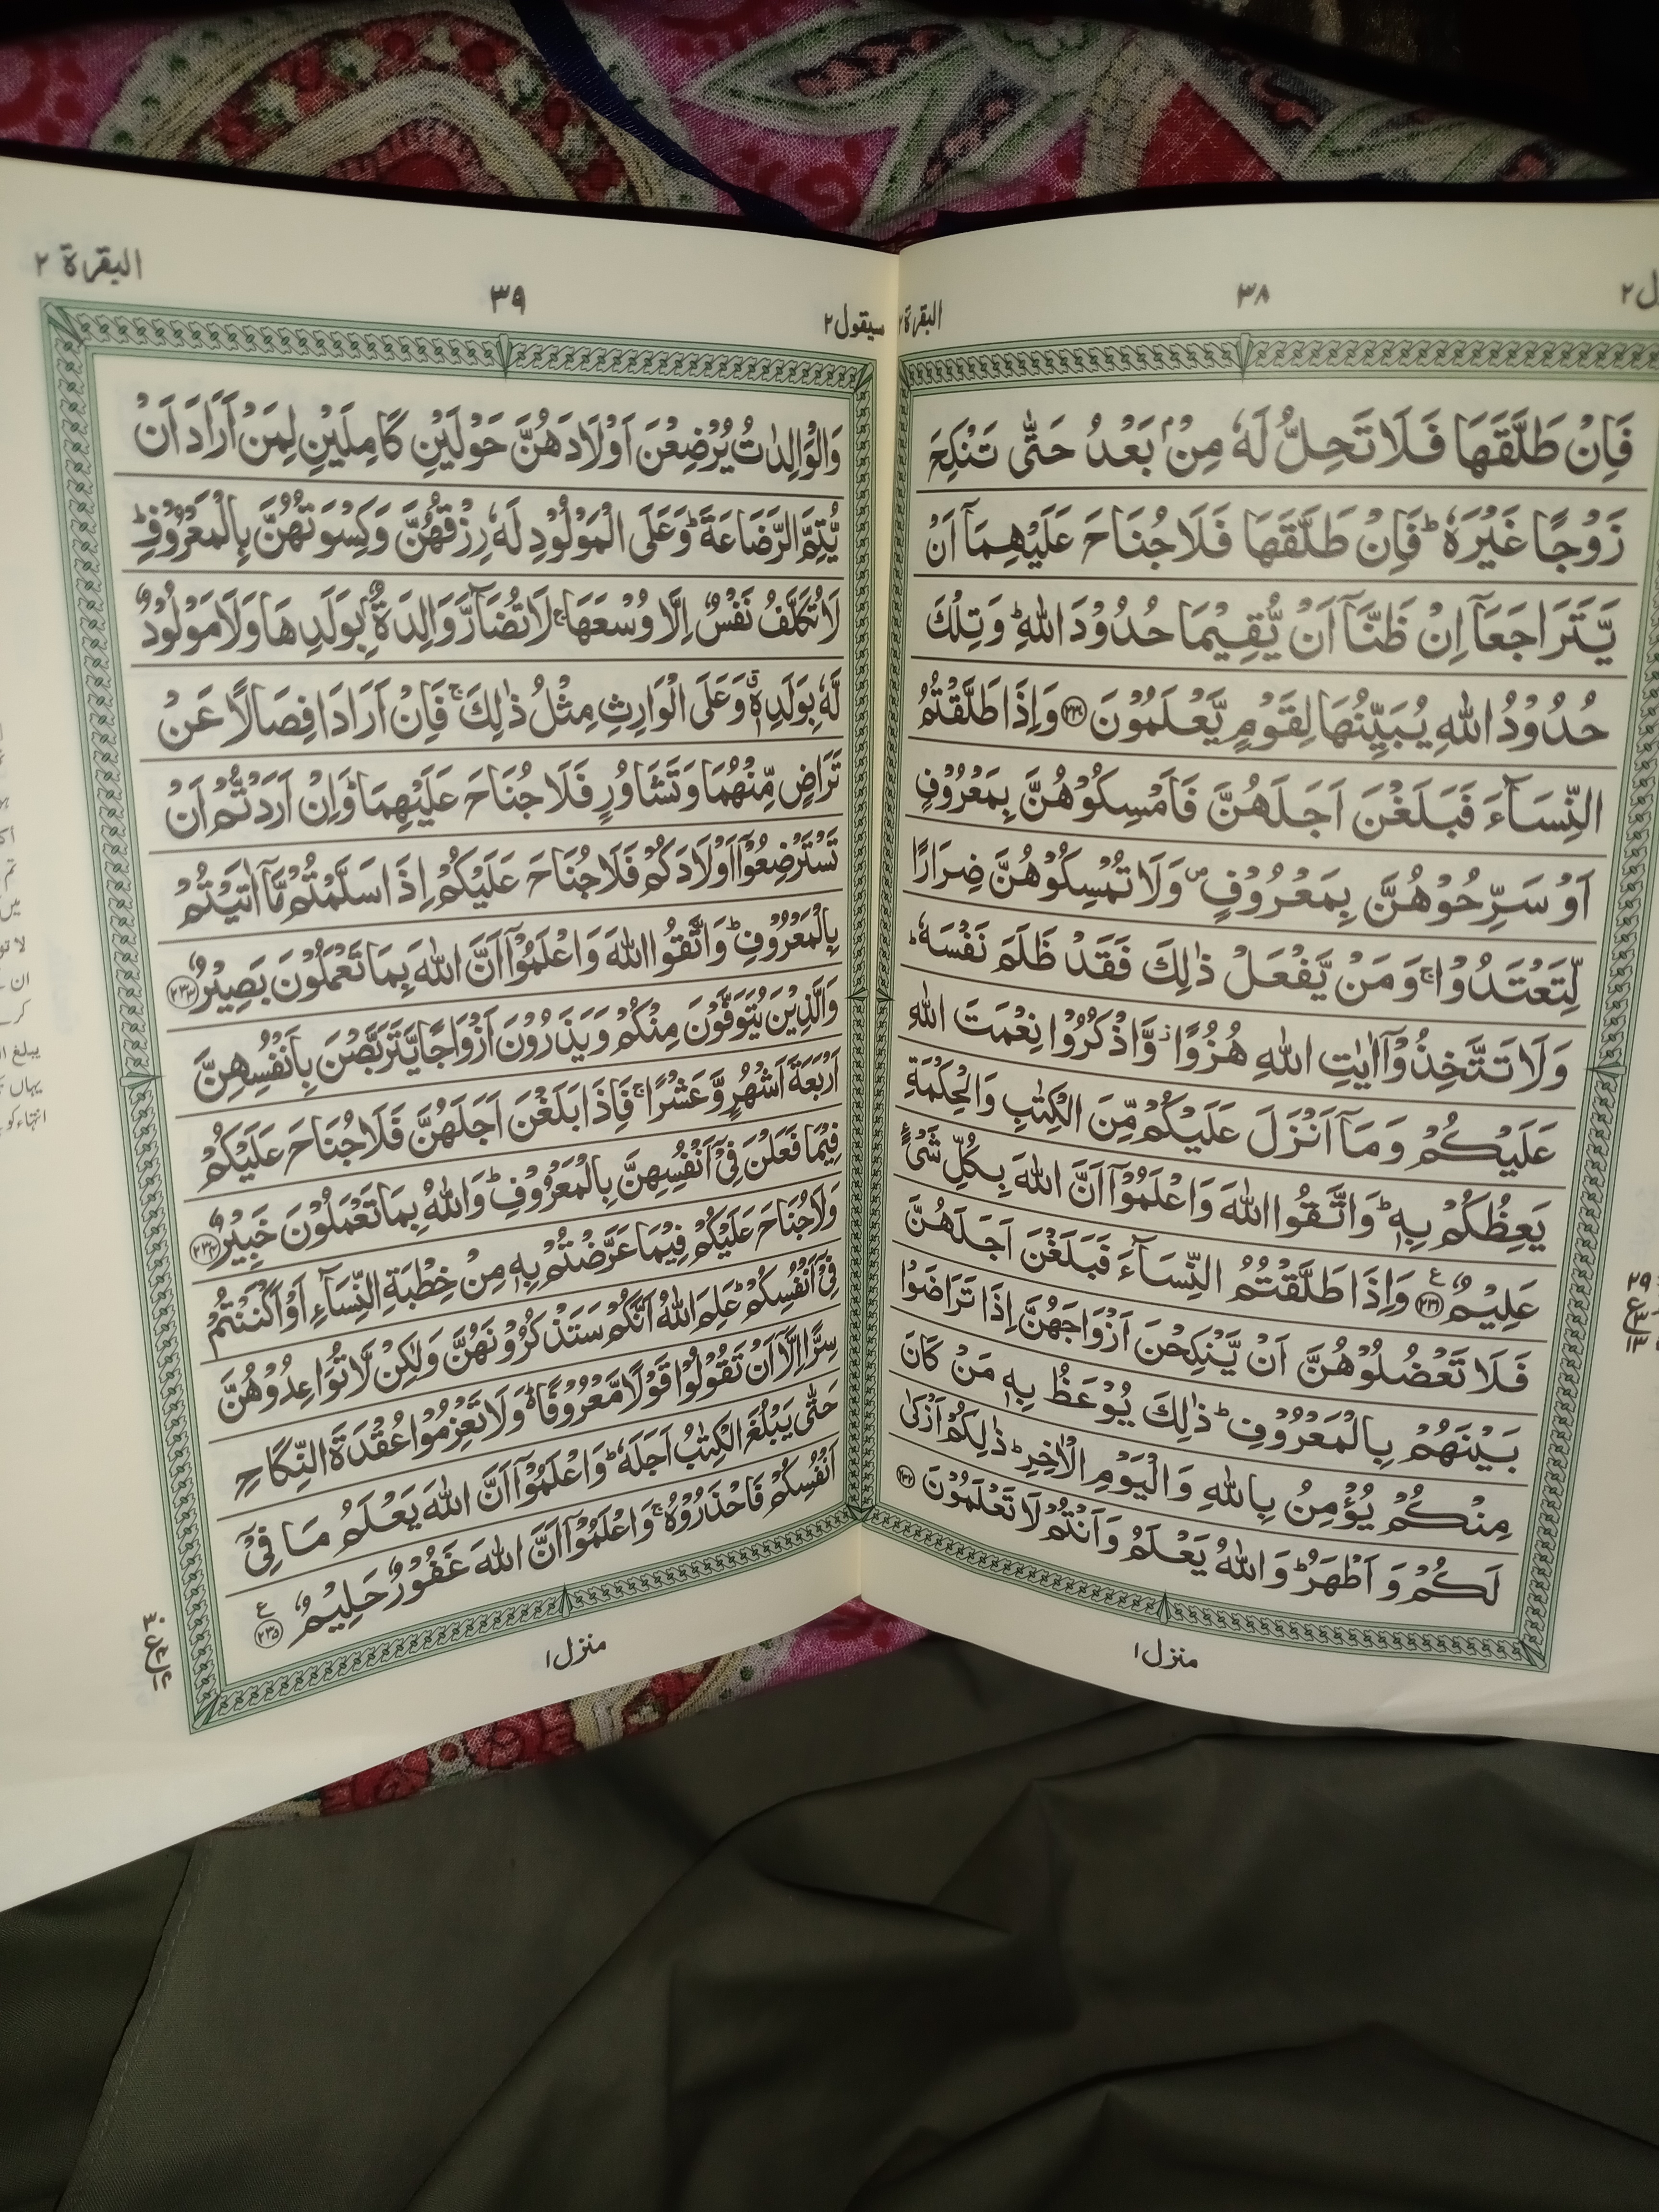 البقرة ٢
٣٨
فَاِنْ طَلَّقَهَا فَلَا تَحِلُّ لَهٗ مِنْۢ بَعْدُ حَتّٰى تَنْكِحَ
زَوْجًا غَيْرَهٗ ؕ فَاِنْ طَلَّقَهَا فَلَا جُنَاحَ عَلَيْهِمَاۤ اَنْ
يَّتَرَاجَعَاۤ اِنْ ظَنَّاۤ اَنْ يُّقِيْمَا حُدُوْدَ اللّٰهِ ؕ وَتِلْكَ
حُدُوْدُ اللّٰهِ يُبَيِّنُهَا لِقَوْمٍ يَّعْلَمُوْنَ ﴿۲۳۰﴾ وَاِذَا طَلَّقْتُمُ
النِّسَآءَ فَبَلَغْنَ اَجَلَهُنَّ فَاَمْسِكُوْهُنَّ بِمَعْرُوْفٍ
اَوْ سَرِّحُوْهُنَّ بِمَعْرُوْفٍ ۪ وَلَا تُمْسِكُوْهُنَّ ضِرَارًا
لِّتَعْتَدُوْا ۚ وَمَنْ يَّفْعَلْ ذٰلِكَ فَقَدْ ظَلَمَ نَفْسَهٗ ؕ
وَلَا تَتَّخِذُوْۤا اٰيٰتِ اللّٰهِ هُزُوًا ؗ وَّاذْكُرُوْا نِعْمَتَ اللّٰهِ
عَلَيْكُمْ وَمَاۤ اَنْزَلَ عَلَيْكُمْ مِّنَ الْكِتٰبِ وَالْحِكْمَةِ
يَعِظُكُمْ بِهٖ ؕ وَاتَّقُوا اللّٰهَ وَاعْلَمُوْۤا اَنَّ اللّٰهَ بِكُلِّ شَىْءٍ
عَلِيْمٌ ﴿۲۳۱﴾ ع وَاِذَا طَلَّقْتُمُ النِّسَآءَ فَبَلَغْنَ اَجَلَهُنَّ
فَلَا تَعْضُلُوْهُنَّ اَنْ يَّنْكِحْنَ اَزْوَاجَهُنَّ اِذَا تَرَاضَوْا
بَيْنَهُمْ بِالْمَعْرُوْفِ ؕ ذٰلِكَ يُوْعَظُ بِهٖ مَنْ كَانَ
مِنْكُمْ يُؤْمِنُ بِاللّٰهِ وَالْيَوْمِ الْاٰخِرِ ؕ ذٰلِكُمْ اَزْكٰى
لَكُمْ وَاَطْهَرُ ؕ وَاللّٰهُ يَعْلَمُ وَاَنْتُمْ لَا تَعْلَمُوْنَ ﴿۲۳۲﴾
منزل ١
سيقول ٢
٣٩
البقرة ٢
وَالْوَالِدٰتُ يُرْضِعْنَ اَوْلَادَهُنَّ حَوْلَيْنِ كَامِلَيْنِ لِمَنْ اَرَادَ اَنْ
يُّتِمَّ الرَّضَاعَةَ ؕ وَعَلَى الْمَوْلُوْدِ لَهٗ رِزْقُهُنَّ وَكِسْوَتُهُنَّ بِالْمَعْرُوْفِ ؕ
لَا تُكَلَّفُ نَفْسٌ اِلَّا وُسْعَهَا ۚ لَا تُضَآرَّ وَالِدَةٌۢ بِوَلَدِهَا وَلَا مَوْلُوْدٌ
لَّهٗ بِوَلَدِهٖ ۗ وَعَلَى الْوَارِثِ مِثْلُ ذٰلِكَ ۚ فَاِنْ اَرَادَا فِصَالًا عَنْ
تَرَاضٍ مِّنْهُمَا وَتَشَاوُرٍ فَلَا جُنَاحَ عَلَيْهِمَا ؕ وَاِنْ اَرَدْتُّمْ اَنْ
تَسْتَرْضِعُوْۤا اَوْلَادَكُمْ فَلَا جُنَاحَ عَلَيْكُمْ اِذَا سَلَّمْتُمْ مَّاۤ اٰتَيْتُمْ
بِالْمَعْرُوْفِ ؕ وَاتَّقُوا اللّٰهَ وَاعْلَمُوْۤا اَنَّ اللّٰهَ بِمَا تَعْمَلُوْنَ بَصِيْرٌ ﴿۲۳۳﴾
وَالَّذِيْنَ يُتَوَفَّوْنَ مِنْكُمْ وَيَذَرُوْنَ اَزْوَاجًا يَّتَرَبَّصْنَ بِاَنْفُسِهِنَّ
اَرْبَعَةَ اَشْهُرٍ وَّعَشْرًا ۚ فَاِذَا بَلَغْنَ اَجَلَهُنَّ فَلَا جُنَاحَ عَلَيْكُمْ
فِيْمَا فَعَلْنَ فِىْۤ اَنْفُسِهِنَّ بِالْمَعْرُوْفِ ؕ وَاللّٰهُ بِمَا تَعْمَلُوْنَ خَبِيْرٌ ﴿۲۳۴﴾
وَلَا جُنَاحَ عَلَيْكُمْ فِيْمَا عَرَّضْتُمْ بِهٖ مِنْ خِطْبَةِ النِّسَآءِ اَوْ اَكْنَنْتُمْ
فِىْۤ اَنْفُسِكُمْ ؕ عَلِمَ اللّٰهُ اَنَّكُمْ سَتَذْكُرُوْنَهُنَّ وَلٰكِنْ لَّا تُوَاعِدُوْهُنَّ
سِرًّا اِلَّاۤ اَنْ تَقُوْلُوْا قَوْلًا مَّعْرُوْفًا ؕ وَلَا تَعْزِمُوْا عُقْدَةَ النِّكَاحِ
حَتّٰى يَبْلُغَ الْكِتٰبُ اَجَلَهٗ ؕ وَاعْلَمُوْۤا اَنَّ اللّٰهَ يَعْلَمُ مَا فِىْۤ
اَنْفُسِكُمْ فَاحْذَرُوْهُ ۚ وَاعْلَمُوْۤا اَنَّ اللّٰهَ غَفُوْرٌ حَلِيْمٌ ﴿۲۳۵﴾ ع
منزل ١